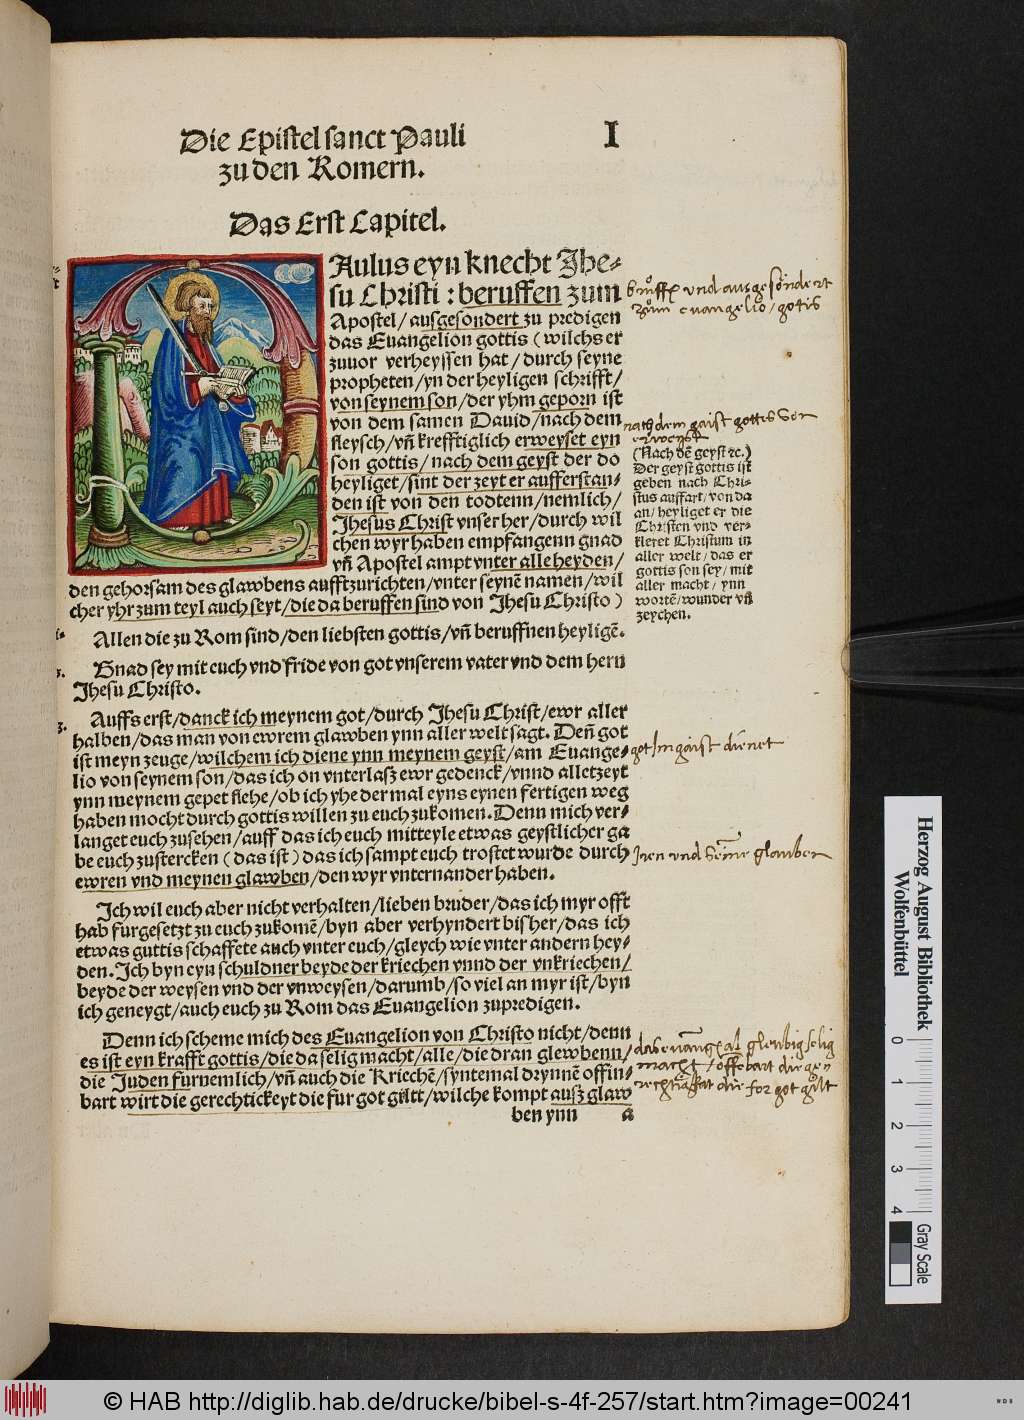 Die Epistel sanct Pauli
zu den Romern.
I
Das Erst Capitel.
PAulus eyn knecht Jhe-
su Christi : beruffen zum
Apostel/ ausgesondert zu predigen
das Euangelion gottis (wilchs er
zuuor verheyssen hat/ durch seyne
propheten/ yn der heyligen schrifft/
von seynem son/ der yhm geporn ist
von dem samen Dauid/ nach dem
fleysch/ vn̄ krefftiglich erweyset eyn
son gottis/ nach dem geyst der do
heyliget/ sint der zeyt er aufferstan-
den ist von den todtenn/ nemlich/
Jhesus Christ vnser her/ durch wil
chen wyr haben empfangenn gnad
vn̄ Apostel ampt vnter alle heyden/
den gehorsam des glawbens aufftzurichten/ vnter seynē namen/ wil
cher yhr zum teyl auch seyt/ die da beruffen sind von Jhesu Christo)
Allen die zu Rom sind/ den liebsten gottis/ vn̄ beruffnen heyligē.
Gnad sey mit euch vnd fride von got vnserem vater vnd dem hern
Jhesu Christo.
Auffs erst/ danck ich meynem got/ durch Jhesu Christ/ ewr aller
halben/ das man von ewrem glawben ynn aller welt sagt. Den̄ got
ist meyn zeuge/ wilchem ich diene ynn meynem geyst/ am Euange-
lio von seynem son/ das ich on vnterlasz ewr gedenck/ vnnd alletzeyt
ynn meynem gepet flehe/ ob ich yhe der mal eyns eynen fertigen weg
haben mocht durch gottis willen zu euch zukomen. Denn mich ver-
langet euch zusehen/ auff das ich euch mitteyle etwas geystlicher ga
be euch zustercken (das ist) das ich sampt euch trostet wurde durch
ewren vnd meynen glawben/ den wyr vnternander haben.
Ich wil euch aber nicht verhalten/ lieben bruder/ das ich myr offt
hab furgesetzt zu euch zukomē/ byn aber verhyndert bis her/ das ich
etwas guttis schaffete auch vnter euch/ gleych wie vnter andern hey-
den. Ich byn eyn schuldner beyde der kriechen vnnd der vnkriechen/
beyde der weysen vnd der vnweysen/ darumb/ so viel an myr ist/ byn
ich geneygt/ auch euch zu Rom das Euangelion zupredigen.
Denn ich scheme mich des Euangelion von Christo nicht/ denn
es ist eyn krafft gottis/ die da selig macht/ alle/ die dran glewbenn/
die Juden furnemlich/ vn̄ auch die Kriechē/ syntemal drynnē offin-
bart wirt die gerechtickeyt die fur got gilt/ wilche kompt ausz glaw
ben ynn a
vnd ausgesöndert
zům euangelio/ gotis
nach dem gaist gottis
(Nach dē geyst ꝛc.)
Der geyst gottis ist
geben nach Chri-
stus auffart/ von da
an/ heyliget er die
Christen vnd ver-
kleret Christum in
aller welt/ das er
gottis son sey/ mit
aller macht/ ynn
wortē/ wunder vn̄
zeychen.
got Im gaist dienet
Iren vnd glauben
glenbig selig
macht/ offebart die
for got gilt
Herzog August Bibliothek
Wolfenbüttel
0 1 2 3 4
Gray Scale
© HAB http://diglib.hab.de/drucke/bibel-s-4f-257/start.htm?image=00241